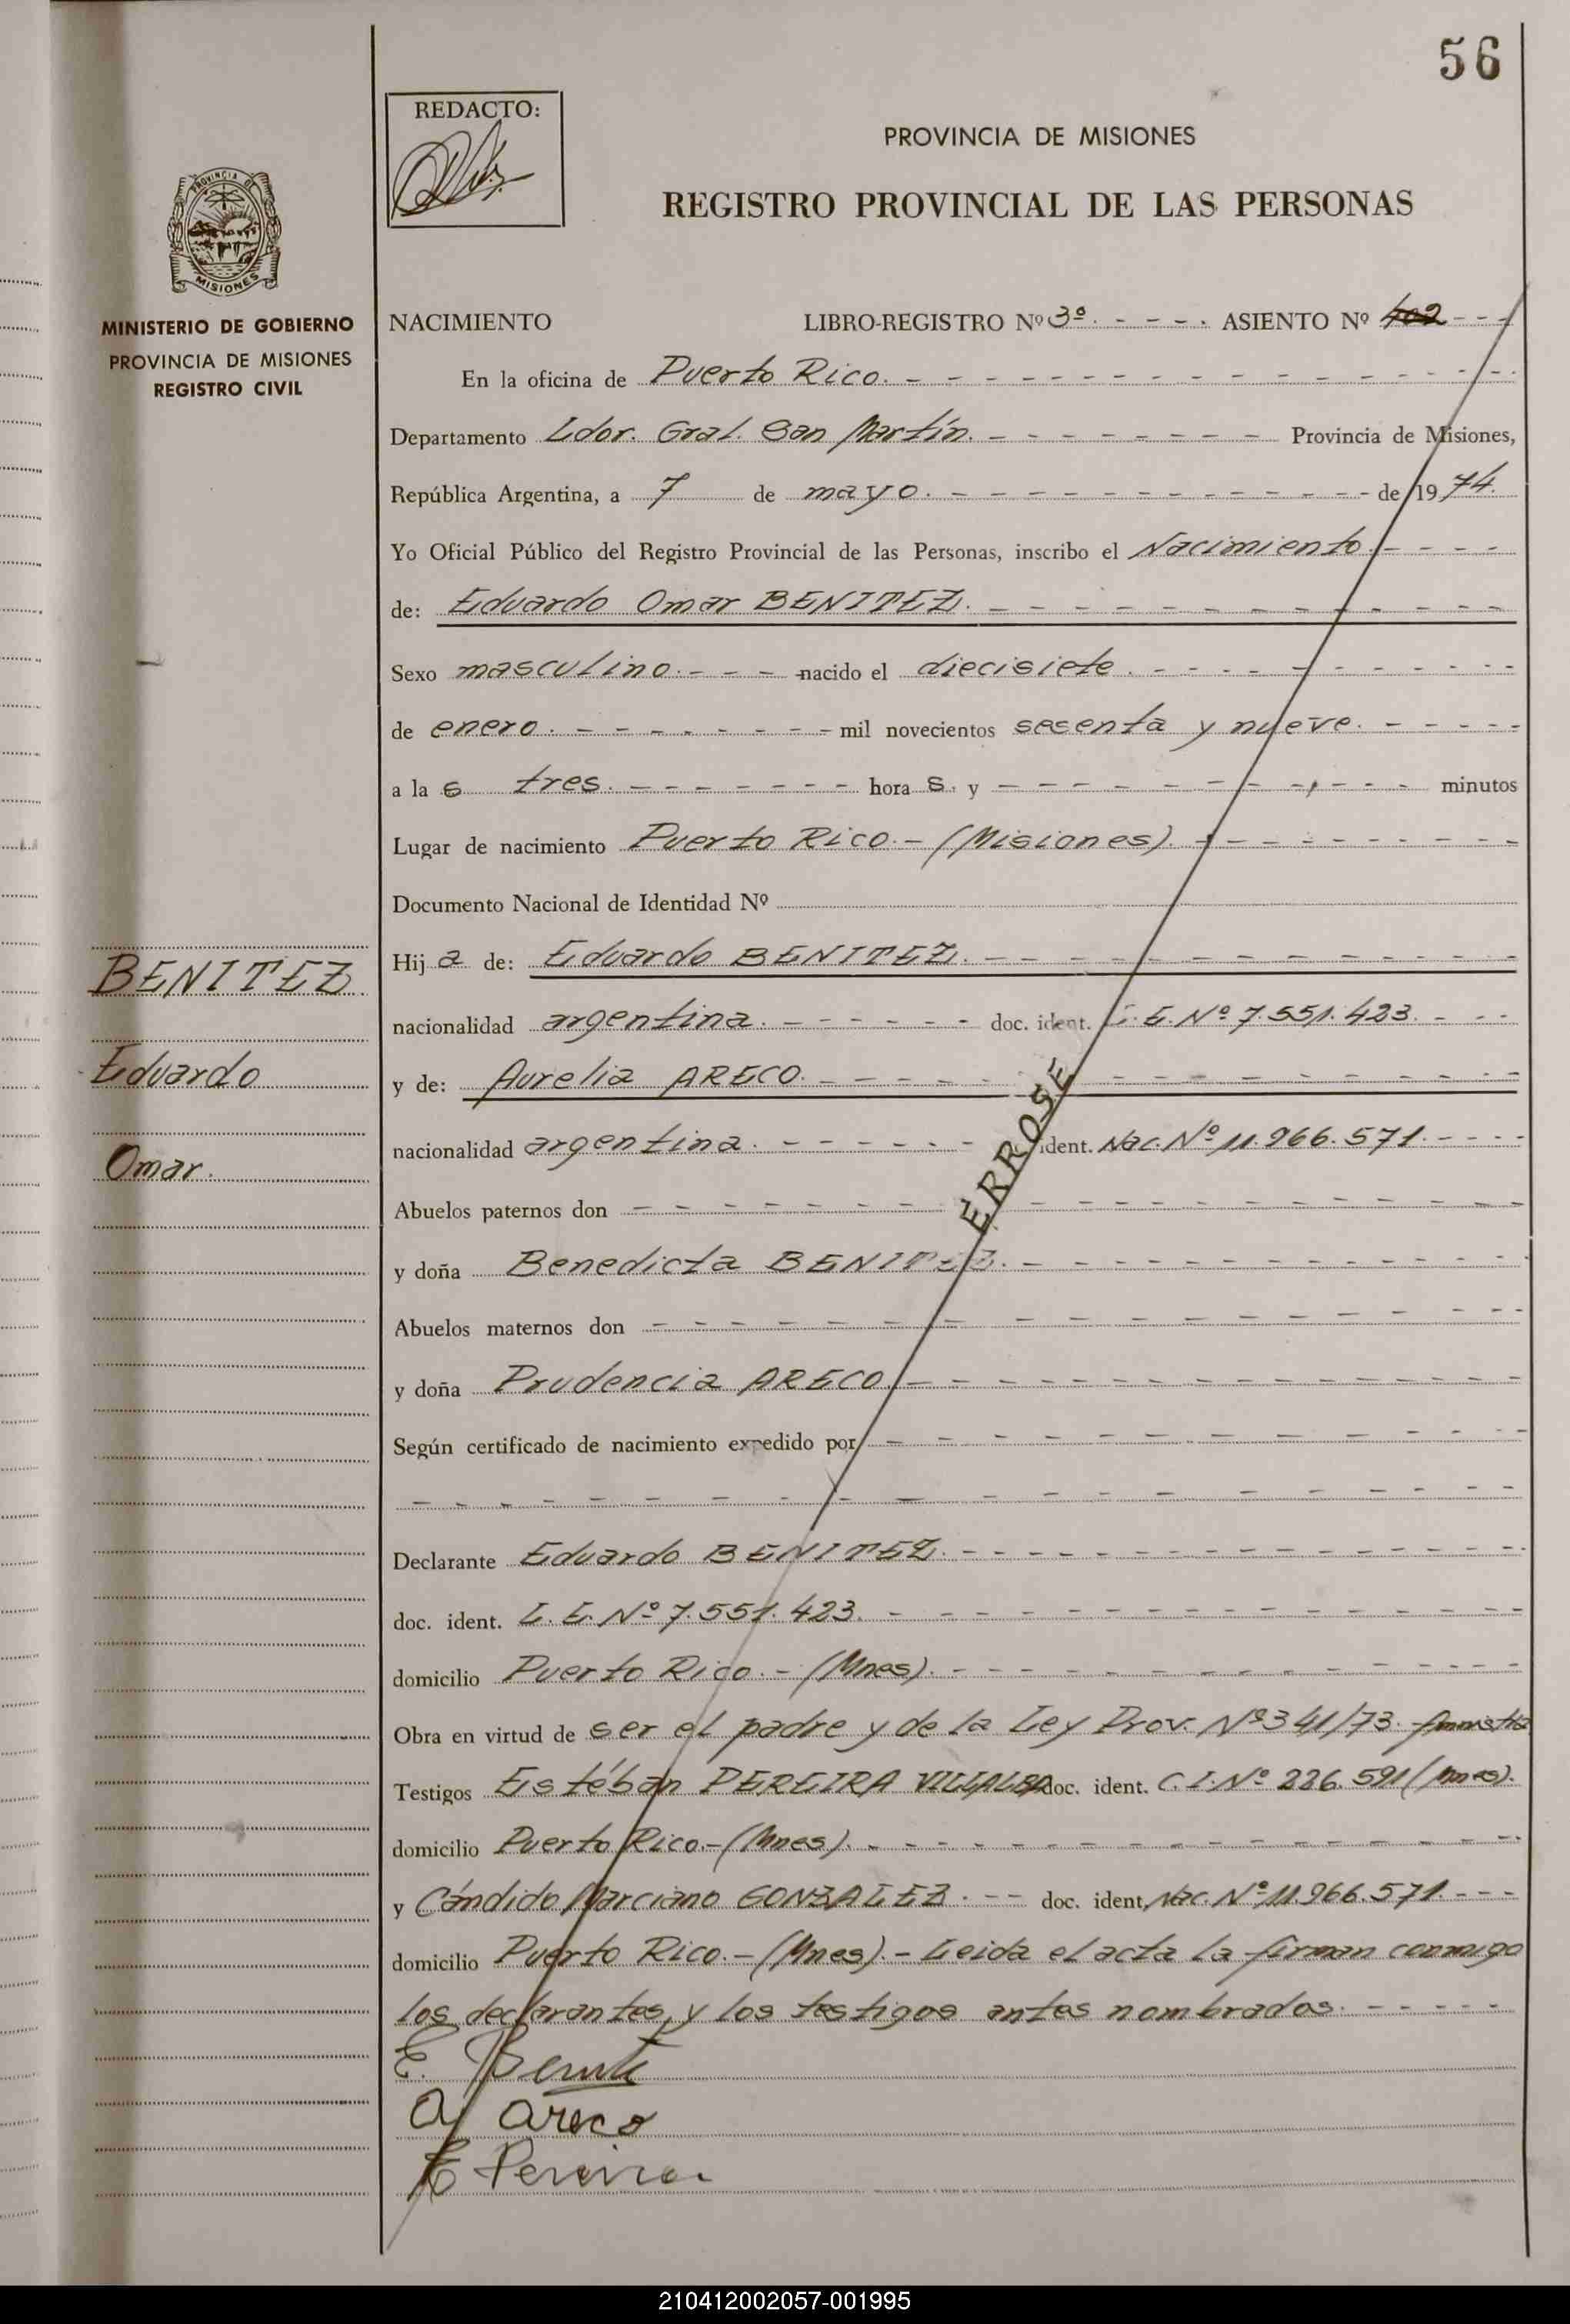 56
REDACTO:
PROVINCIA DE MISIONES
REGISTRO PROVINCIAL DE LAS PERSONAS
PROVINCIA DE
MISIONES
MINISTERIO DE GOBIERNO
PROVINCIA DE MISIONES
REGISTRO CIVIL
NACIMIENTO LIBRO-REGISTRO Nº 3º. - - - - . ASIENTO Nº 402 - - -
En la oficina de Puerto Rico. - - - -
Departamento Ldor. Gral. San Martín. - - - - Provincia de Misiones,
República Argentina, a 7 de mayo. - - - - de 1974.
Yo Oficial Público del Registro Provincial de las Personas, inscribo el Nacimiento. - - - -
de: Eduardo Omar BENITEZ. - - - -
Sexo masculino. - - - nacido el diecisiete. - - - -
de enero. - - - - mil novecientos sesenta y nueve. - - - -
a la s tres. - - - - hora s. y - - - - minutos
Lugar de nacimiento Puerto Rico. - (Misiones). - - - -
Documento Nacional de Identidad Nº
Hij a de: Eduardo BENITEZ. - - - -
nacionalidad argentina. - - - - doc. ident. L. E. Nº 7.551.423. - - -
y de: Aurelia ARECO. - - - -
nacionalidad argentina. - - - - ident. Nac. Nº 11.966.571. - - - -
ERROSE
Abuelos paternos don - - - -
y doña Benedicta BENITEZ. - - - -
Abuelos maternos don - - - -
y doña Prudencia ARECO. - - - -
Según certificado de nacimiento expedido por - - - -
- - - -
Declarante Eduardo BENITEZ. - - - -
doc. ident. L. E. Nº 7.551.423. - - - -
domicilio Puerto Rico. - (Mnes). - - - -
Obra en virtud de ser el padre y de la Ley Prov. Nº 341/73. Amnistia
Testigos Estéban PEREIRA VILLALBA doc. ident. C. I. Nº 226.591 (Mnes).
domicilio Puerto Rico. - (Mnes). - - - -
y Cándido Marciano GONZALEZ. - - doc. ident. Nac. Nº 11.966.571. - - -
domicilio Puerto Rico. - (Mnes). - Leida el acta la firman conmigo
los declarantes, y los testigos antes nombrados. - - - -
E. Benite
A. Areco
E Pereira
BENITEZ
Eduardo
Omar.
210412002057-001995